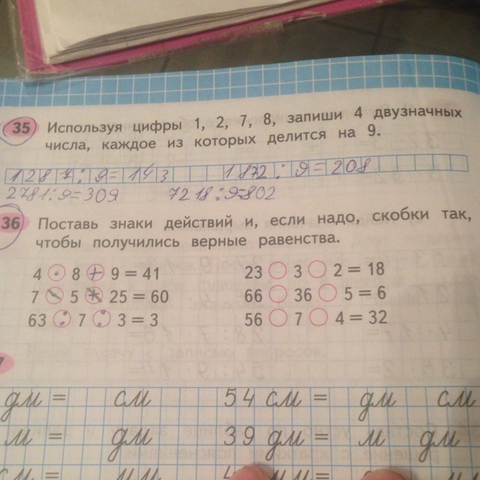 35 Используя цифры 1, 2, 7, 8, запиши 4 двузначных
числа, каждое из которых делится на 9.
1287:9=143 1872:9=208
2781:9=309 7218:9=802
36 Поставь знаки действий и, если надо, скобки так,
чтобы получились верные равенства.
4 · 8 + 9 = 41 23 3 2 = 18
7 5 + 25 = 60 66 36 5 = 6
63 : 7 : 3 = 3 56 7 4 = 32
дм = см 54 см = дм см
м = дм 39 дм = м дм